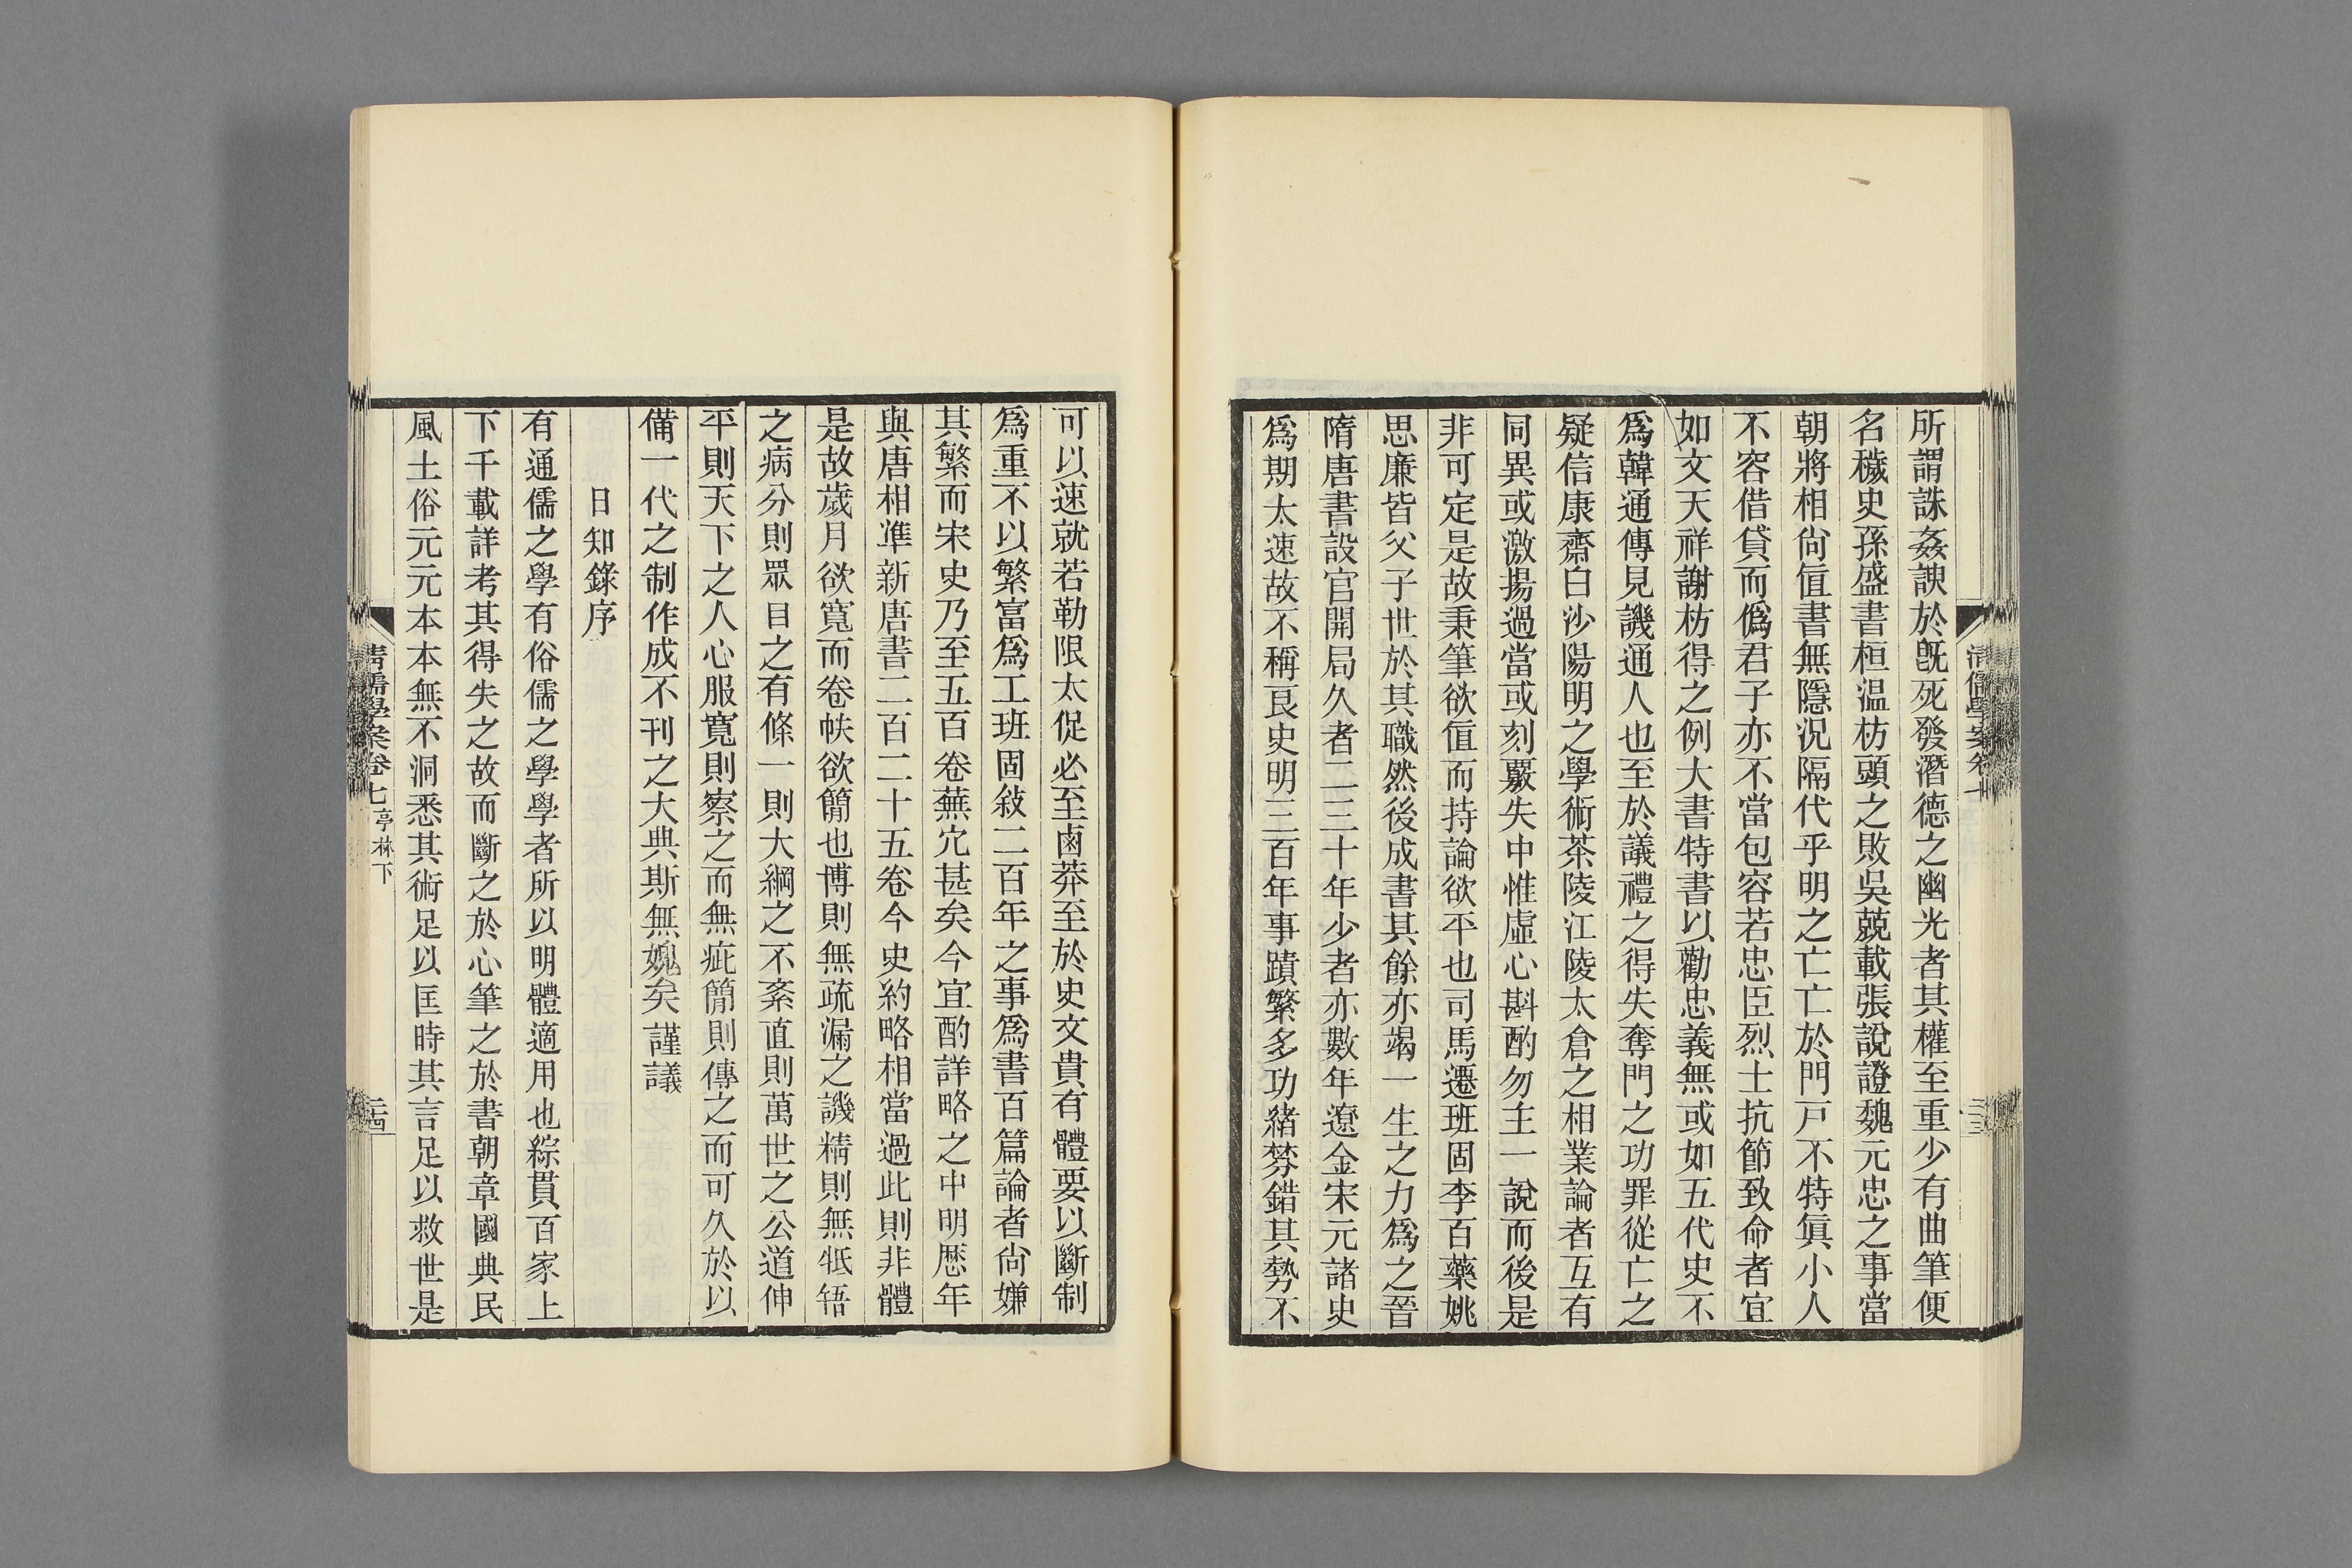 所謂誅姦諛於旣死發潛德之幽光者其權至重少有曲筆便
名穢史孫盛書桓温枋頭之敗吳兢載張說證魏元忠之事當
朝將相尙值書無隱況隔代乎明之亡亡於門戸不特眞小人
不容借貸而僞君子亦不當包容若忠臣烈士抗節致命者宜
如文天祥謝枋得之例大書特書以勸忠義無或如五代史不
爲韓通傳見譏通人也至於議禮之得失奪門之功罪從亡之
疑信康齋白沙陽明之學術茶陵江陵太倉之相業論者互有
同異或激揚過當或刻覈失中惟虛心斟酌勿主一說而後是
非可定是故秉筆欲值而持論欲平也司馬遷班固李百藥姚
思廉皆父子世於其職然後成書其餘亦竭一生之力爲之晉
隋唐書設官開局久者二三十年少者亦數年遼金宋元諸史
爲期太速故不稱良史明三百年事蹟繁多功緒棼錯其勢不
可以速就若勒限太促必至鹵莽至於史文貴有體要以斷制
爲重不以繁富爲工班固敍二百年之事爲書百篇論者尙嫌
其繁而宋史乃至五百卷蕪宂甚矣今宜酌詳略之中明歷年
與唐相準新唐書二百二十五卷今史約略相當過此則非體
是故歲月欲寬而卷帙欲簡也博則無疏漏之譏精則無牴牾
之病分則眾目之有條一則大綱之不紊直則萬世之公道伸
平則天下之人心服寬則察之而無疵簡則傳之而可久於以
備一代之制作成不刊之大典斯無媿矣謹議
日知錄序
有通儒之學有俗儒之學學者所以明體適用也綜貫百家上
下千載詳考其得失之故而斷之於心筆之於書朝章國典民
風土俗元元本本無不洞悉其術足以匡時其言足以救世是
清儒學案卷七 亭林下